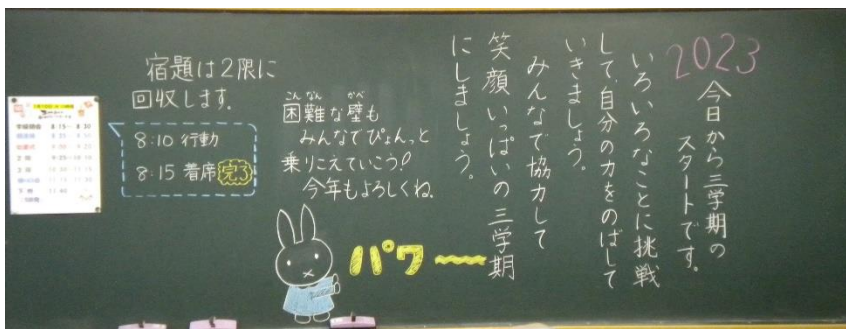 2023
今日から三学期の
スタートです。
いろいろなことに挑戦
して、自分の力をのばして
いきましょう。
みんなで協力して
笑顔いっぱいの三学期
にしましょう。
こんなん かべ
困難な壁も
みんなでぴょんっと
乗りこえていこう!
今年もよろしくね。
パワー
宿題は2限に
回収します。
8:10 行動
8:15 着席 完了